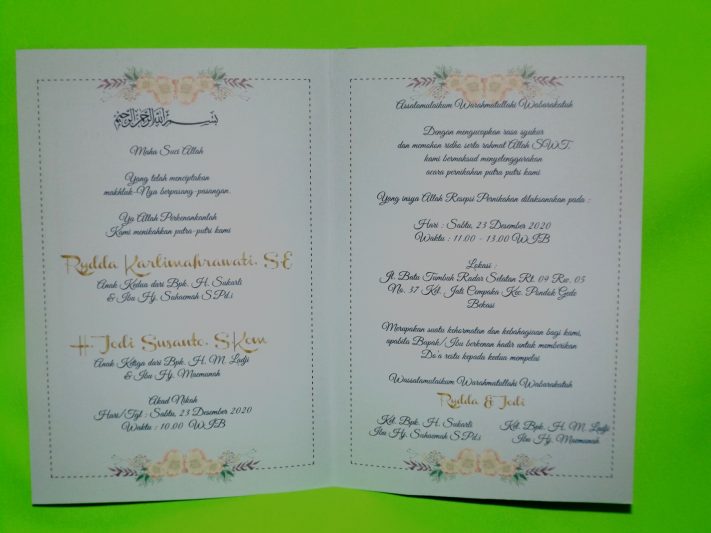 بسم الله الرحمن الرحيم
Maha Suci Allah
Yang telah menciptakan
makhluk-Nya berpasang-pasangan.
Ya Allah Perkenankanlah
Kami menikahkan putra-putri kami
Rydda Karlimahrawati, SE
Anak Kedua dari Bpk. H. Sukarli
& Ibu Hj. Suhaemah S.Pd.i
H. Jodi Susanto, S.Kom
Anak Ketiga dari Bpk. H. M. Ladji
& Ibu Hj. Maemanah
Akad Nikah
Hari/Tgl : Sabtu, 23 Desember 2020
Waktu : 10.00 WIB
Assalamulaikum Warahmatullahi Wabarakatuh
Dengan mengucapkan rasa syukur
dan memohon ridho serta rahmat Allah SWT.
kami bermaksud menyelenggarakan
acara pernikahan putra putri kami
Yang insya Allah Resepsi Pernikahan dilaksanakan pada :
Hari : Sabtu, 23 Desember 2020
Waktu : 11.00 - 13.00 WIB
Lokasi :
Jl. Batu Tumbuh Radar Selatan Rt. 09 Rw. 05
No. 37 Kel. Jati Cempaka Kec. Pondok Gede
Bekasi
Merupakan suatu kehormatan dan kebahagiaan bagi kami,
apabila Bapak/Ibu berkenan hadir untuk memberikan
Do'a restu kepada kedua mempelai
Wassalamulaikum Warahmatullahi Wabarakatuh
Rydda & Jodi
Kel. Bpk. H. Sukarli
Ibu Hj. Suhaemah S.Pd.i
Kel. Bpk. H. M. Ladji
Ibu Hj. Maemanah